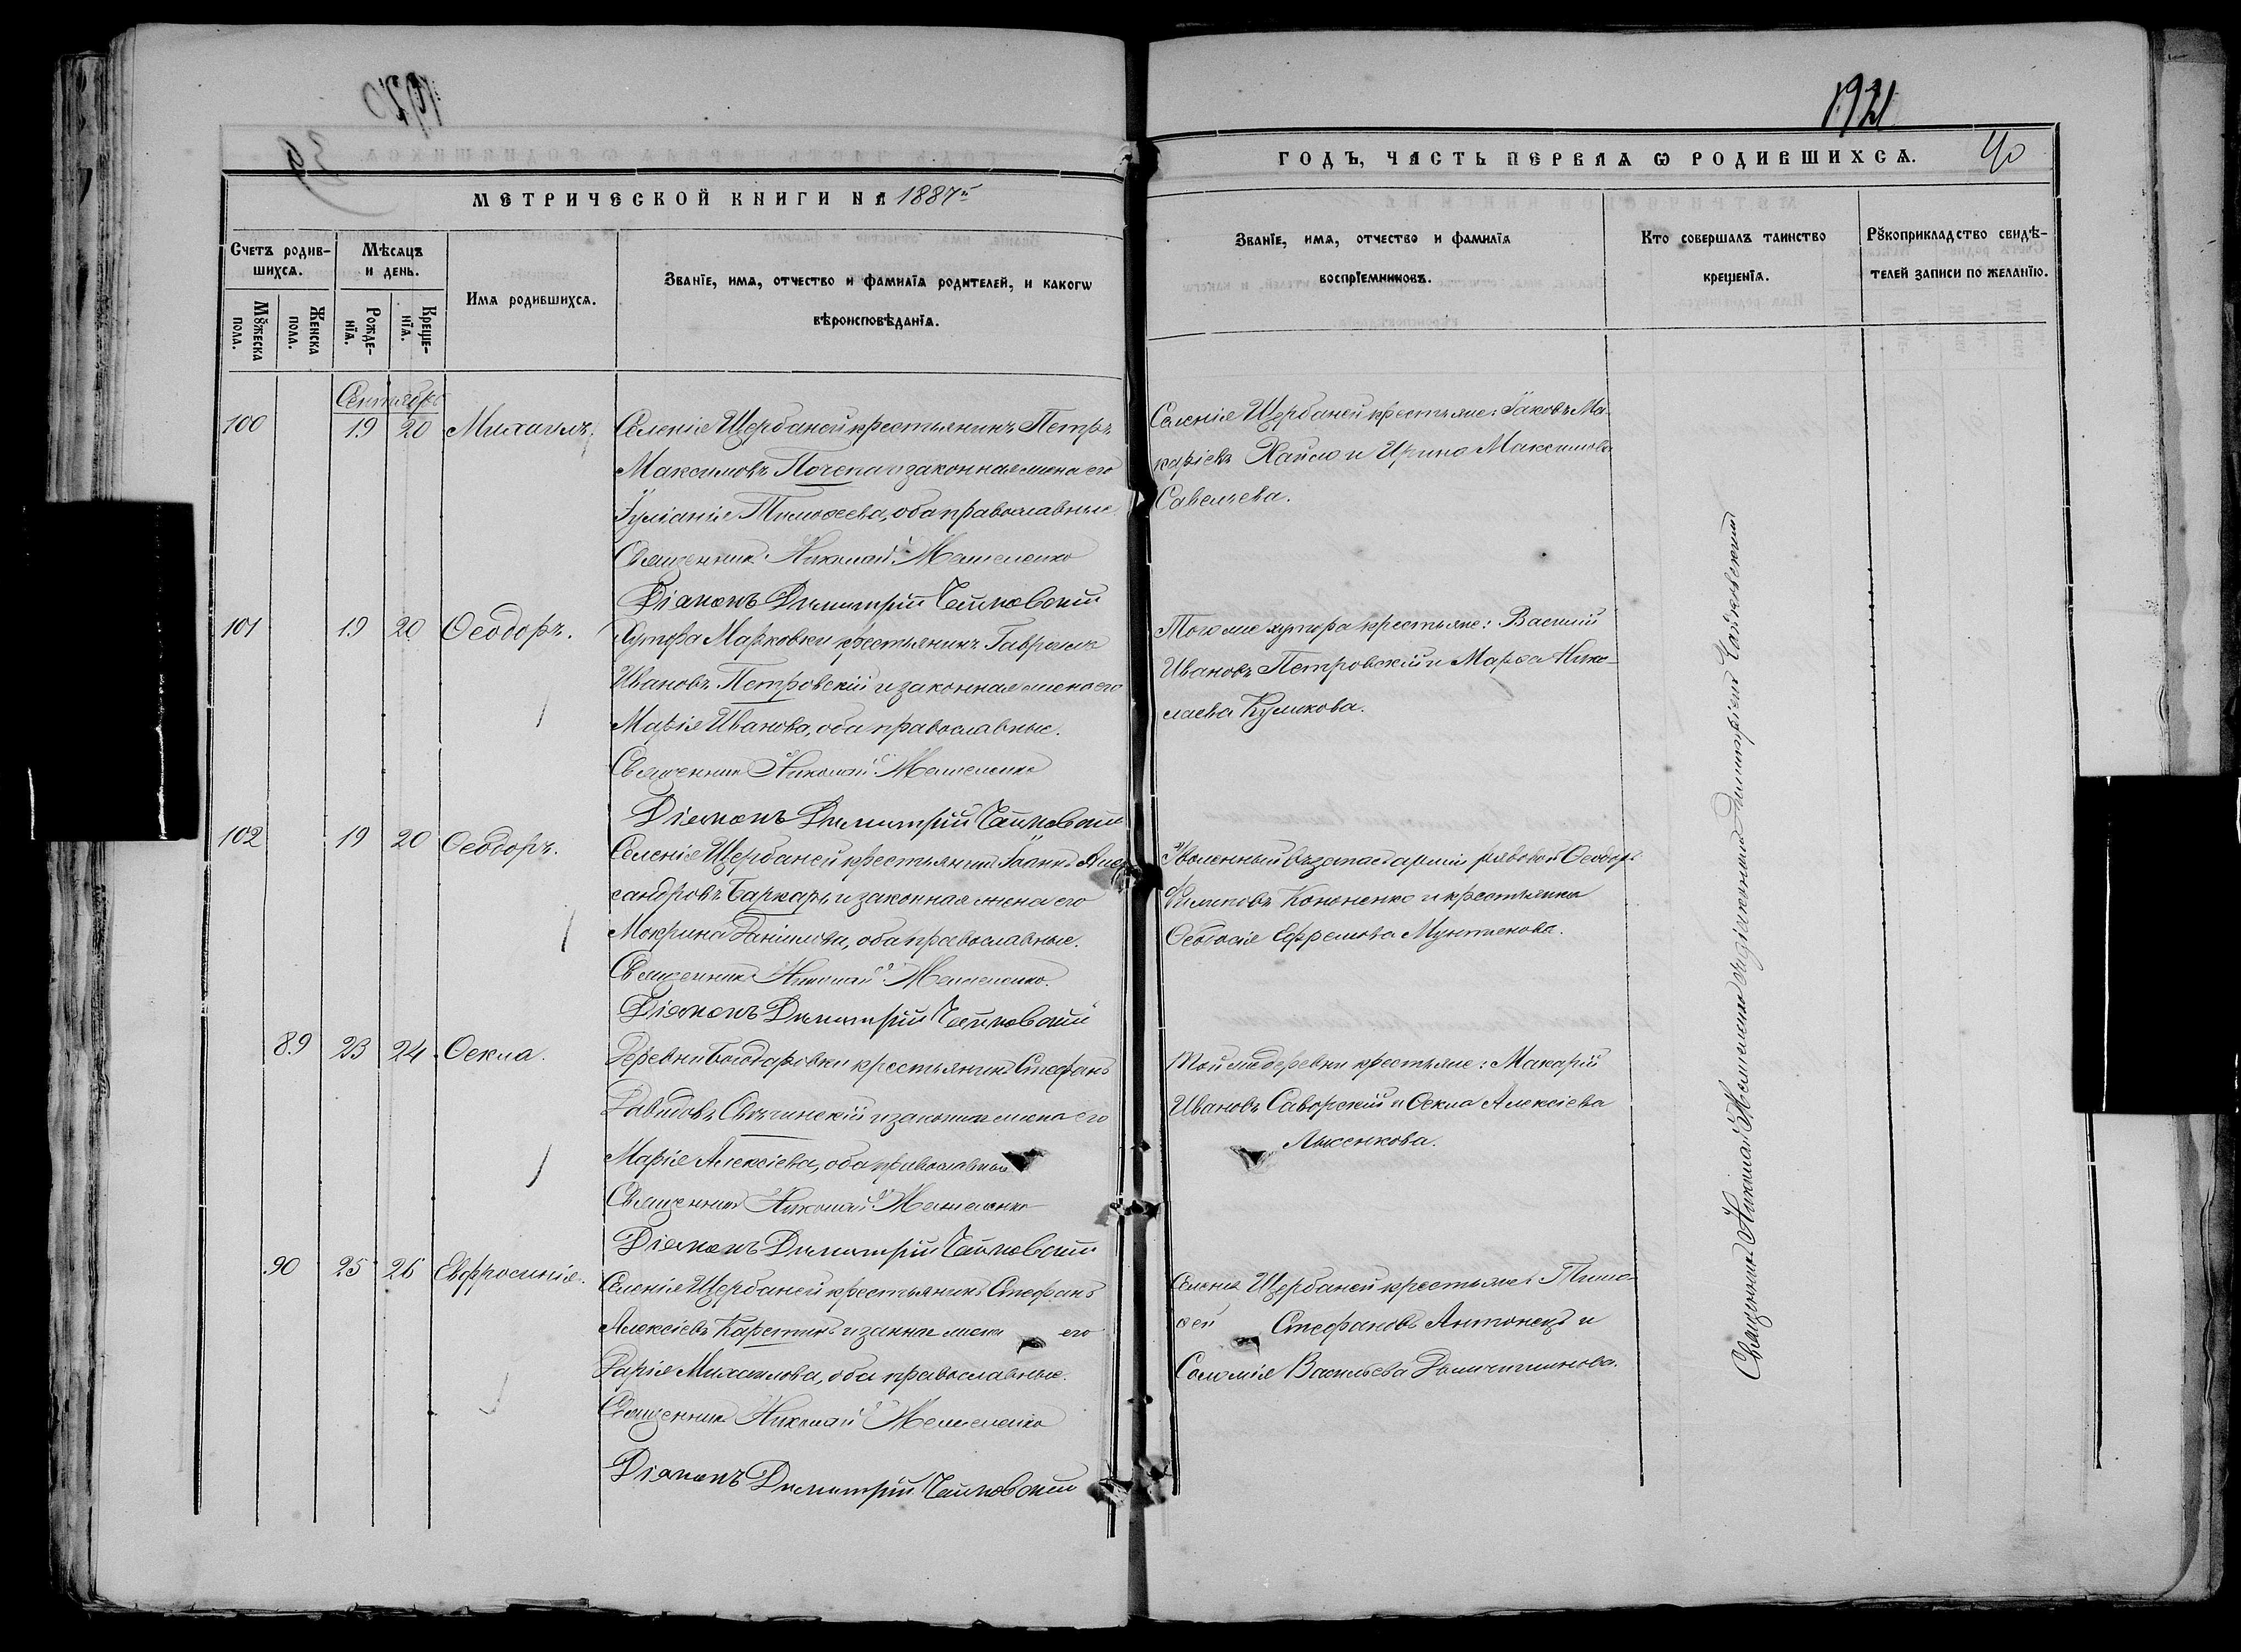 1920
39
МЕТРИЧЕСКОЙ КНИГИ НА 1887й
Счетъ родив-
шихся.
Мѣсяцъ
и день.
Имя родившихся.
Званїе, имя, отчество и фамилїя родителей, и какогѡ
вѣроисповѣданїя.
Мꙋжеска
пола.
Женска
пола.
Рожде-
нїя.
Креще-
нїя.
Сентябрь
100 19 20 Михаилъ. Селенія Щербаней крестьянинъ Петръ
Максимовъ Почепа и законная жена его
Іуліанія Тимоѳеева, оба православные
Священникъ Николай
Діаконъ Димитрій Чайковскій
101 19 20 Ѳеодоръ. Хутора Марковки крестьянинъ Гавріилъ
Ивановъ Петровскій и законная жена его
Марія Иванова, оба православные.
Священникъ Николай
Діаконъ Димитрій Чайковскій
102 19 20 Ѳеодоръ. Селенія Щербаней крестьянинъ Іоаннъ Алек
сандровъ Баркарь и законная жена его
Мокрина Данилова, оба православные.
Священникъ Николай
Діаконъ Димитрій Чайковскій
89 23 24 Ѳекла. Деревни Богодаровки крестьянинъ Стефанъ
Давидовъ Свѣчинскій и законная жена его
Марія Алексіева, оба православные
Священникъ Николай
Діаконъ Димитрій Чайковскій
90 25 26 Евфросинія. Селенія Щербаней крестьянинъ Стефанъ
Алексіевъ и законная жена его
Дарія Михаилова, оба православные.
Священникъ Николай
Діаконъ Димитрій Чайковскій
1921
40
ГОДЪ, ЧАСТЬ ПЕРВАЯ Ѡ РОДИВШИХСЯ.
Званїе, имя, отчество и фамилїя
воспрїемниковъ.
Кто совершалъ таинство
крещенїя.
Рꙋкоприкладство свидѣ-
телей записи по желанїю.
Селенія Щербаней крестьяне: Іаковъ Ма-
каріевъ и Ирина Максимова
Савельева.
Того же хутора крестьяне: Василій
Ивановъ Петровскій и Марѳа Нико-
лаева Куликова.
Уволенный въ запасъ арміи рядовой Ѳеодоръ
Филиповъ Кононенко и крестьянка
Ѳеодосія Ефремова Мунтянова.
Той же деревни крестьяне: Макарій
Ивановъ Саворскій и Ѳекла Алексіева
Лысенкова.
Селенія Щербаней крестьяне: Тимо-
ѳей Стефановъ Антонецъ и
Соломія Васильева
Священникъ Николай съ діакономъ Димитріемъ Чайковскимъ